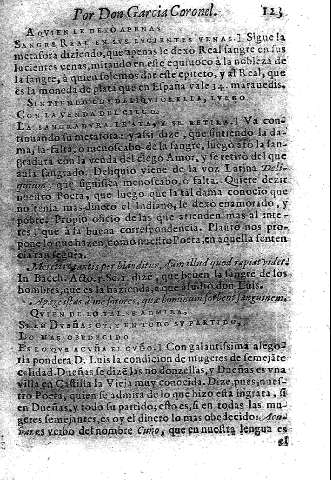 Por Don Garcia Coronel. 123
A QVIEN LE DEXO APENAS
SANGRE REAL EN SVS LVCIENTES VENAS.] Sigue la
metafora diziendo, que apenas le dexo Real sangre en sus
lucientes venas, mirando en este equiuoco à la nobleza de
la sangre, à quien solemos dar este epiteto, y al Real, que
es la moneda de plata que en España vale 34. marauedis.
LVEGO
CON LA VENDA DEL CIEGO.
LA SANGRADVRA LE ATA, Y SE RETIRA.] Va conti
nuando su metafora: y assi dize, que sintiendo la da-
ma, la falta, o menoscabo de la sangre, luego atò la san-
gradura con la venda del ciego Amor, y se retirò del que
auia sangrado. Deliquio viene de la voz Latina Deli-
quium, que significa menoscabo, o falta. Quiere dezir
nuestro Poeta, que luego que la tal dama conocio que
no tenia mas dinero el Indiano, le dexo enamorado, y
pobre. Propio oficio de las que atienden mas al inte-
res, que à la buena correspondencia. Plauto nos pro-
pone lo que hazen, como nuestro Poeta, en aquella senten
cia
In Bacch. Act. Sce. dize, que beuen la sangre de los
hombres, que es la hazienda, a que aludio don Luis.
que hominum sorbent sanguinem.
QVIEN DE LO TAL SE ADMIRA,
SEAN DVEÑAS OY, Y EN TODO SV PARTIDO,
LO MAS OBEDECIDO
ES LO QVE ACVÑA EL CVÑO.] Con galantissima alego-
ria pondera D. Luis la condicion de mugeres de semejãte
calidad. Dueñas se dizẽ las no donzellas, y Dueñas es vna
villa en Castilla la Vieja muy conocida. Dize pues, nues-
tro Poeta, quien se admira de lo que hizo esta ingrata, si
en Dueñas, y todo su partido; esto es, si en todas las mu-
geres semejantes, es oy el dinero lo mas obedecido: Acu-
ñar es verbo del nombre Cuño, que en nuestra lengua es
el